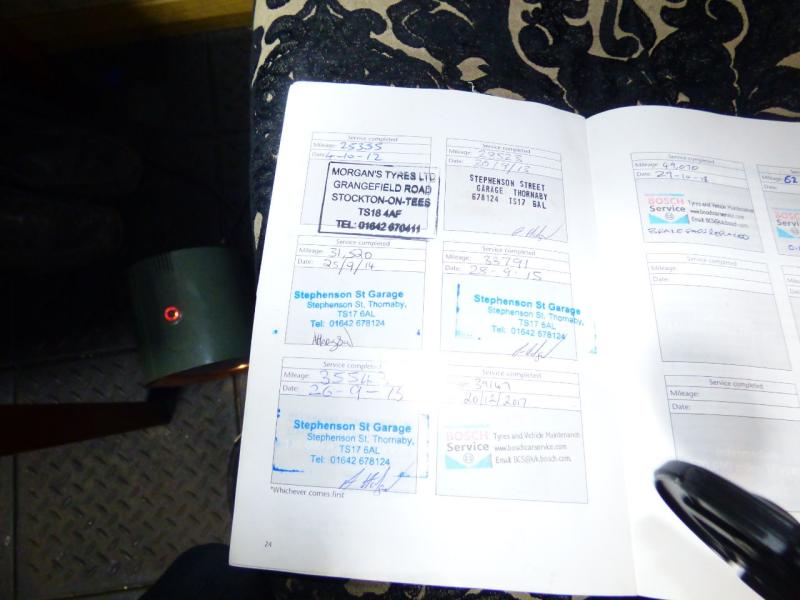 Service completed
Mileage: 25355
Date: 4-10-12
MORGAN'S TYRES LTD
GRANGEFIELD ROAD
STOCKTON-ON-TEES
TS18 4AF
TEL: 01642 670411
Service completed
Mileage:
Date:
STEPHENSON STREET
GARAGE THORNABY
678124 TS17 6AL
Service completed
Mileage: 31,520
Date: 25/9/14
Stephenson St Garage
Stephenson St, Thornaby,
TS17 6AL
Tel: 01642 678124
Service completed
Mileage: 33791
Date: 28-9-15
Stephenson St Garage
Stephenson St, Thornaby,
TS17 6AL
Tel: 01642 678124
Service completed
Mileage:
Date: 26-9-13
Stephenson St Garage
Stephenson St, Thornaby,
TS17 6AL
Tel: 01642 678124
Service completed
39147
20/12/2017
BOSCH
Service
Tyres and Vehicle Maintenance
www.boschcarservice.com
Email: BCS@uk.bosch.com
*Whichever comes first
24
Service completed
Mileage: 49,070
Date: 29-10-18
BOSCH
Service
Tyres and Vehicle Maintenance
www.boschcarservice.com
Email: BCS@uk.bosch.com
Mileage: 62
Date:
Service completed
Mileage:
Date:
Service completed
Mileage:
Date: